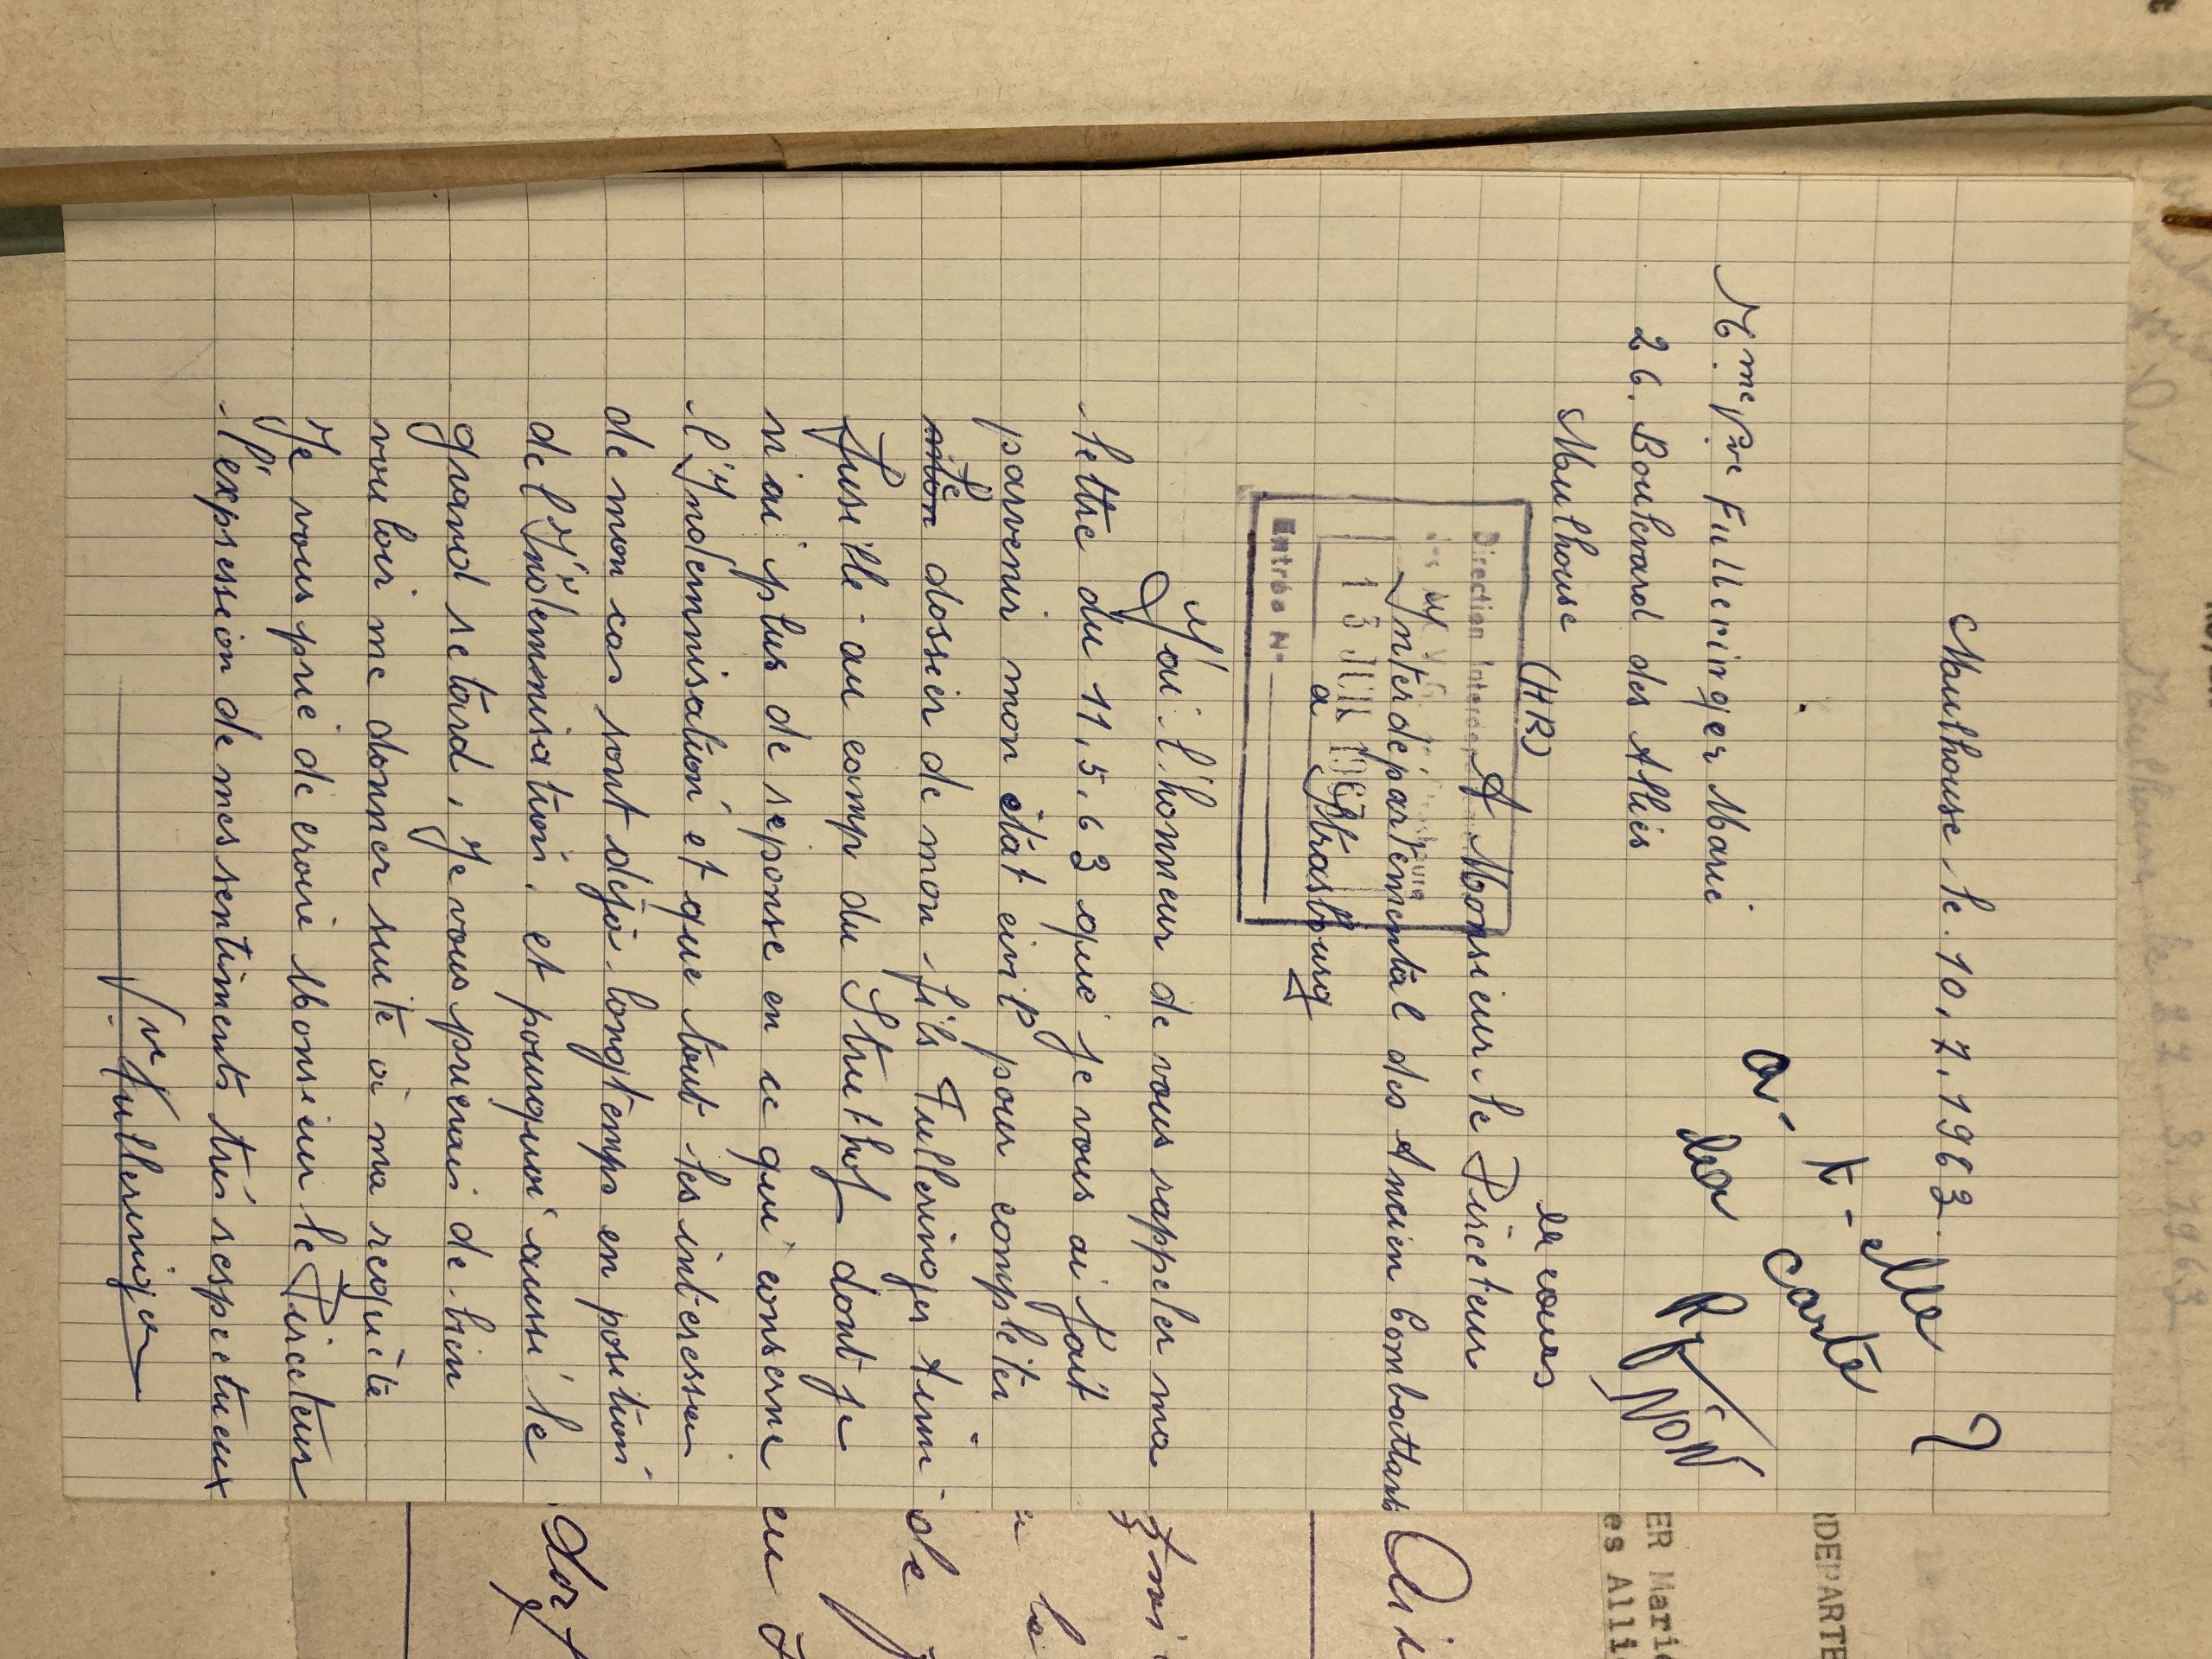 Mulhouse le 10,7,1963.
Mme Vve Fulleringer Marie
26. Boulevard des Alliés
Mulhouse (HR)
a-t-elle
la carte ?
Rf NON
en cours
A Monsieur le Directeur
Interdépartemental des Ancien Combattants
a Strasbourg
Direction Interdép
Entrée N°
J'ai l'honneur de vous rappeler ma
lettre du 11,5,63 que je vous ai fait
parvenir mon état civil pour compléter
le dossier de mon fils Fulleringer Armi
fusillé au camp du Struthof dont je
n'ai plus de reponse en ce qui conserne
l'Indemnisation et que tout les interesser
de mon cas sont dejà longtemps en position
de l'Indemnisation. et pourquoi aussi le
grand retard, Je vous prierai de bien
vouloir me donner suite à ma requête
Je vous prie de croire Monsieur le Directeur
l'expression de mes sentiments très respectueux
Vve Fulleringer
RDEPARTE
ER Marie
es Alli